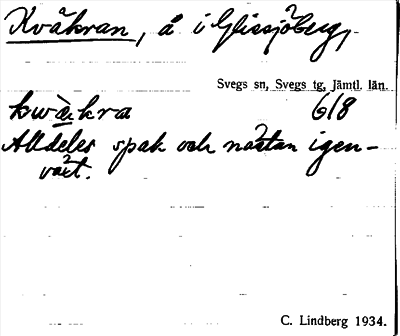 Kväkran, å i Glissjöberg,
Svegs sn, Svegs tg, Jämtl. län.
kwäkra 6/8
Alldeles spak och nästan igen-
växt.
C. Lindberg 1934.